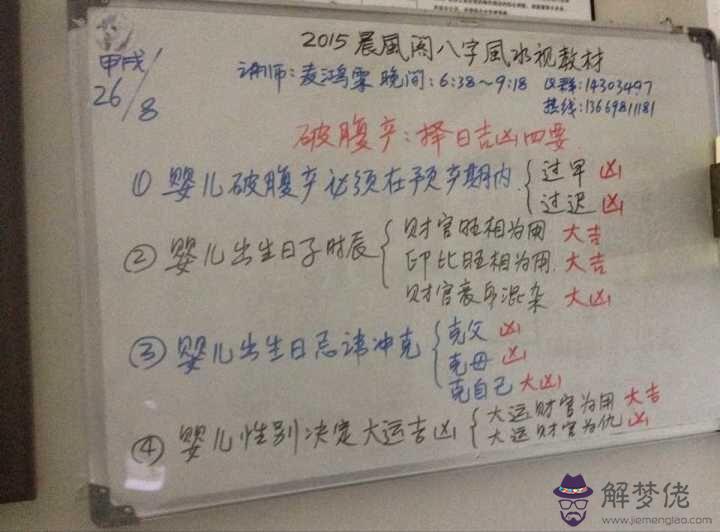 2015晨風阁八字風水视教材
甲戌
26/8
讲师:凌鸿霖 晚间:6:38～9:18 Q群:14303497
热线:13669811181
破腹产:择日吉凶四要
① 婴儿破腹产必须在预产期内 { 过早 凶
过迟 凶
② 婴儿出生日子时辰 { 财官旺相为用 大吉
印比旺相为用 大吉
财官衰 混杂 大凶
③ 婴儿出生日忌讳冲克 { 克父 凶
克母 凶
克自己 大凶
④ 婴儿性别决定大运吉凶 { 大运财官为用 大吉
大运财官为仇 凶
解梦佬
www.jiemenglao.com